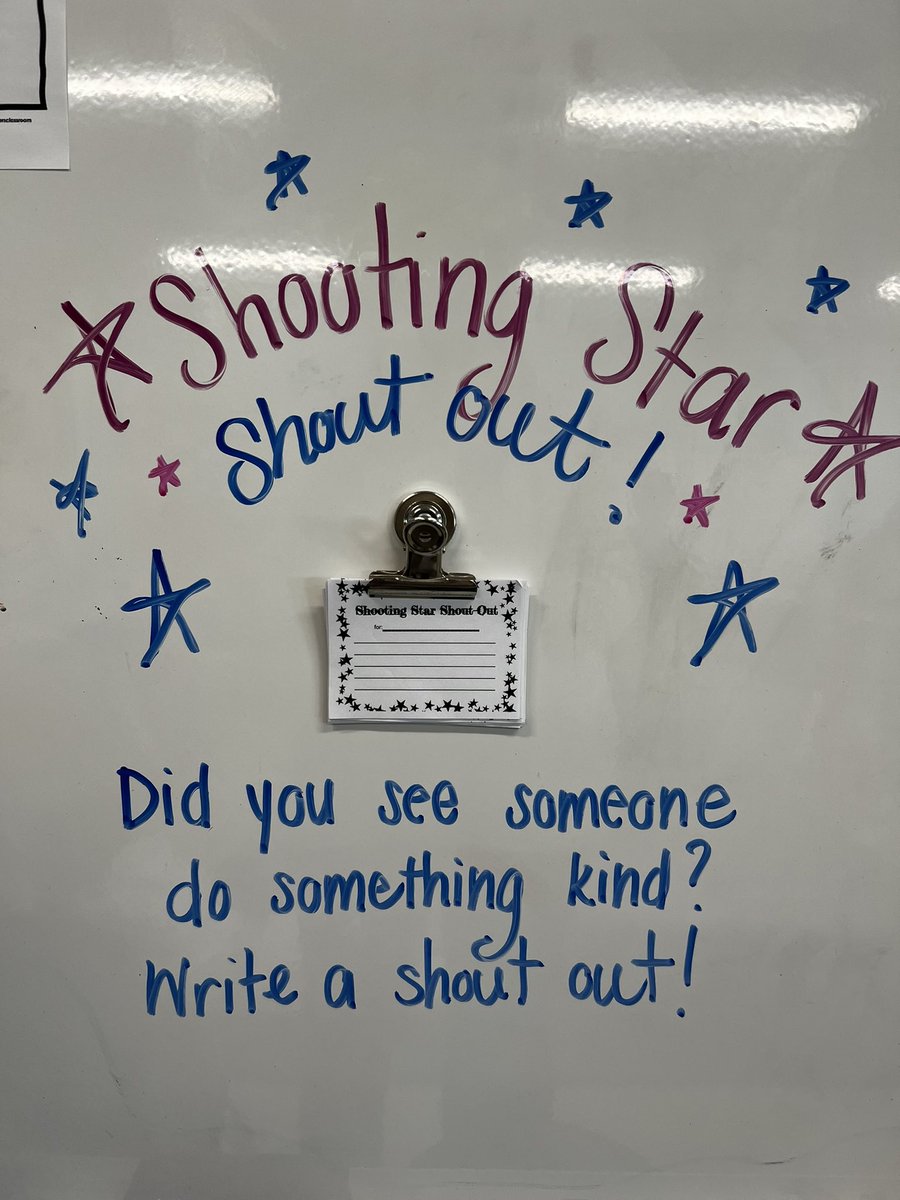 Shooting Star
Shout out!
Shooting Star Shout-Out
for:
Did you see someone
do something kind?
Write a shout out!